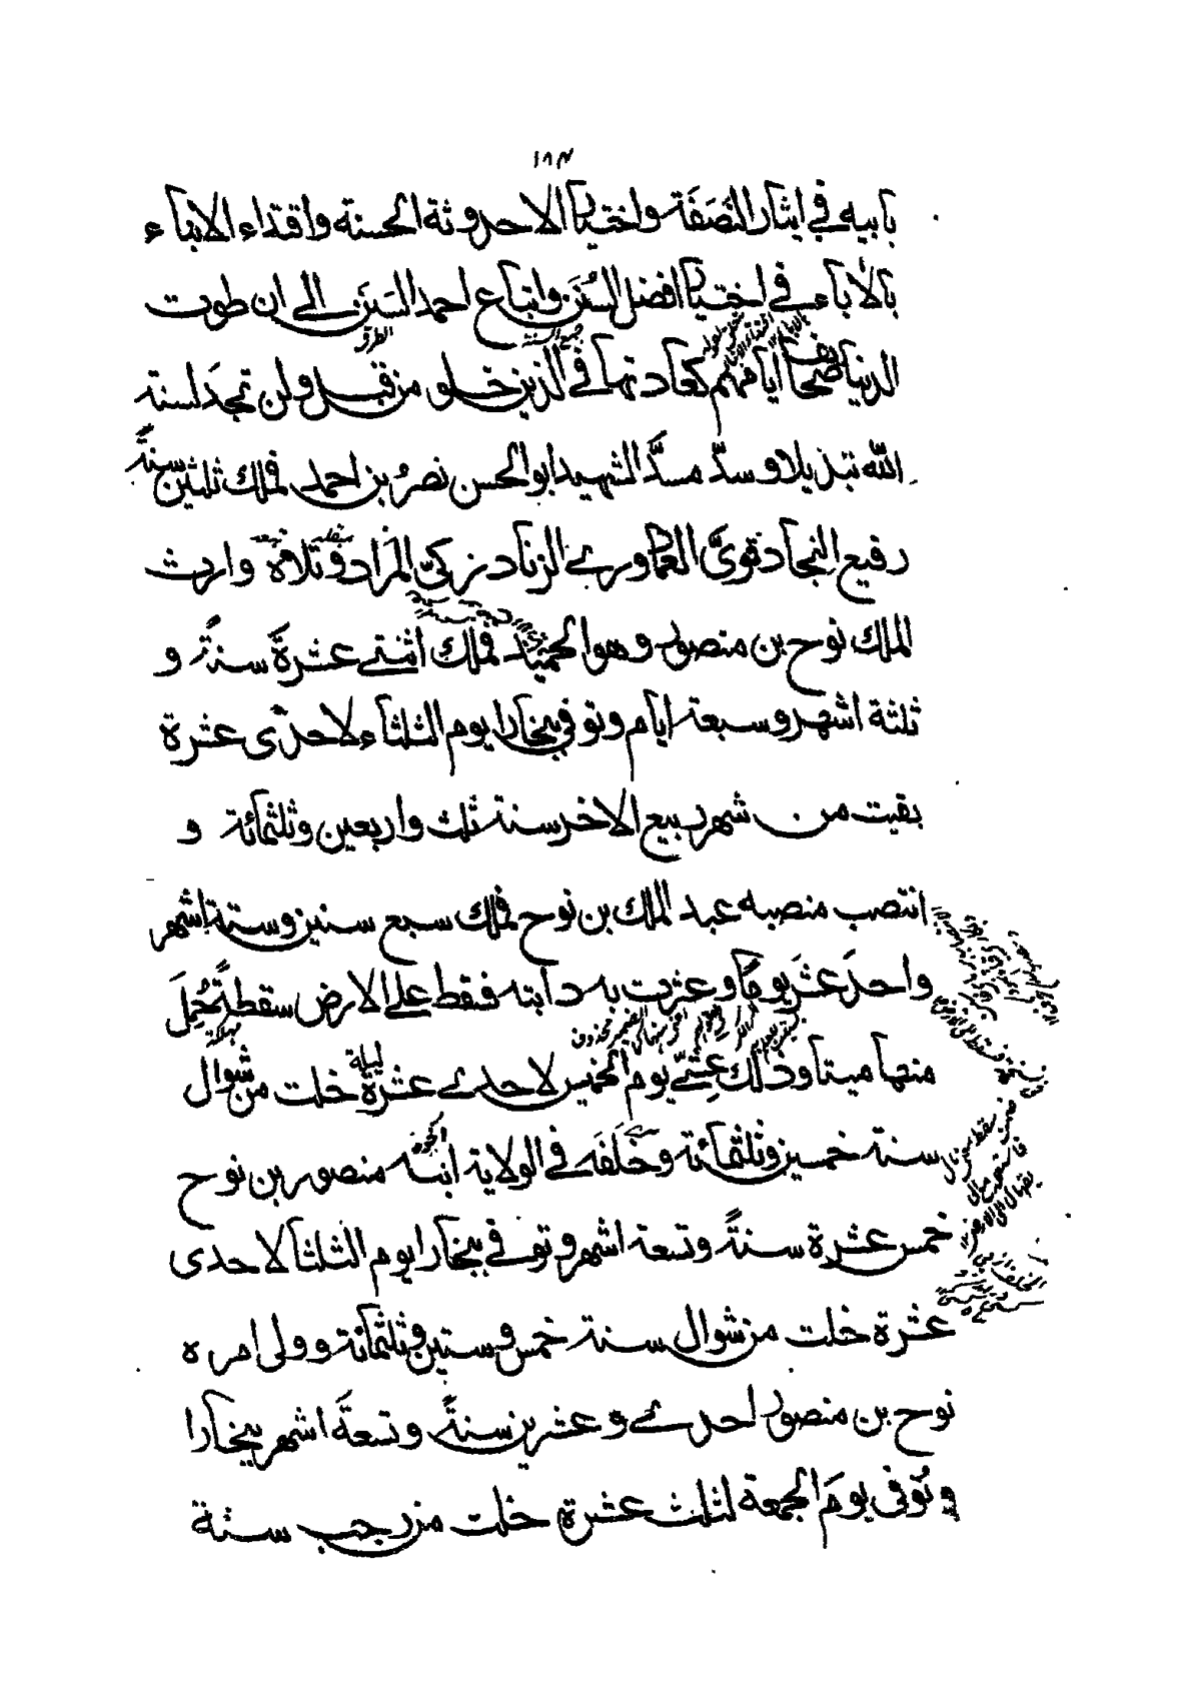 ١٨٣
بابيه في ايثار النَصَفَة واختيار الاحدوثة الحسنة واقتداء الابناء
بالأباء في اختيار افضل السُنَن واتباع احمد السَنَن الى ان طوت
الدنيا صحايف ايامهم كعادتها في الذين خلو من قبل ولن تجدَ لسنة
الله تبذيلا وسدّ مسدَّ الشهيد ابو الحسن نصرُ بن احمد فملك ثلثين سنةً
رفيع النجاد قوىَّ العماد ورى الزناد زكىّ المَراد وتلاه وارث
الملك نوح بن منصور وهو الحميد فملك اثنتى عشرةَ سنةً و
ثلثة اشهر وسبعة ايام وتوفي ببخارا يوم الثلثاء لاحدى عشرة
بقيت من شهر ربيع الاخر سنة ثلث واربعين وثلثمائة و
انتصب منصبه عبد الملك بن نوح فملك سبع سنين وستة اشهر
واحدَ عشَر يومًا وعثرت به دابته فسقط على الارض سقطةً حُمِلَ
منها ميتا وذلك عشىّ يوم الخميس لاحدى عشرة ليلة خلت من شوال
سنة خمسين وثلثمائة وخَلَفَه في الولاية ابنه منصور بن نوح
خمس عشرة سنةً وتسعة اشهر وتوفي ببخارا يوم الثلثا لاحدى
عشرة خلت من شوال سنة خمس وستين وثلثمائة وولى امره
نوح بن منصور احدى و عشرين سنةً وتسعةَ اشهر ببخارا
وتُوفى يومَ الجمعة لثلث عشرة خلت من رجب سنة